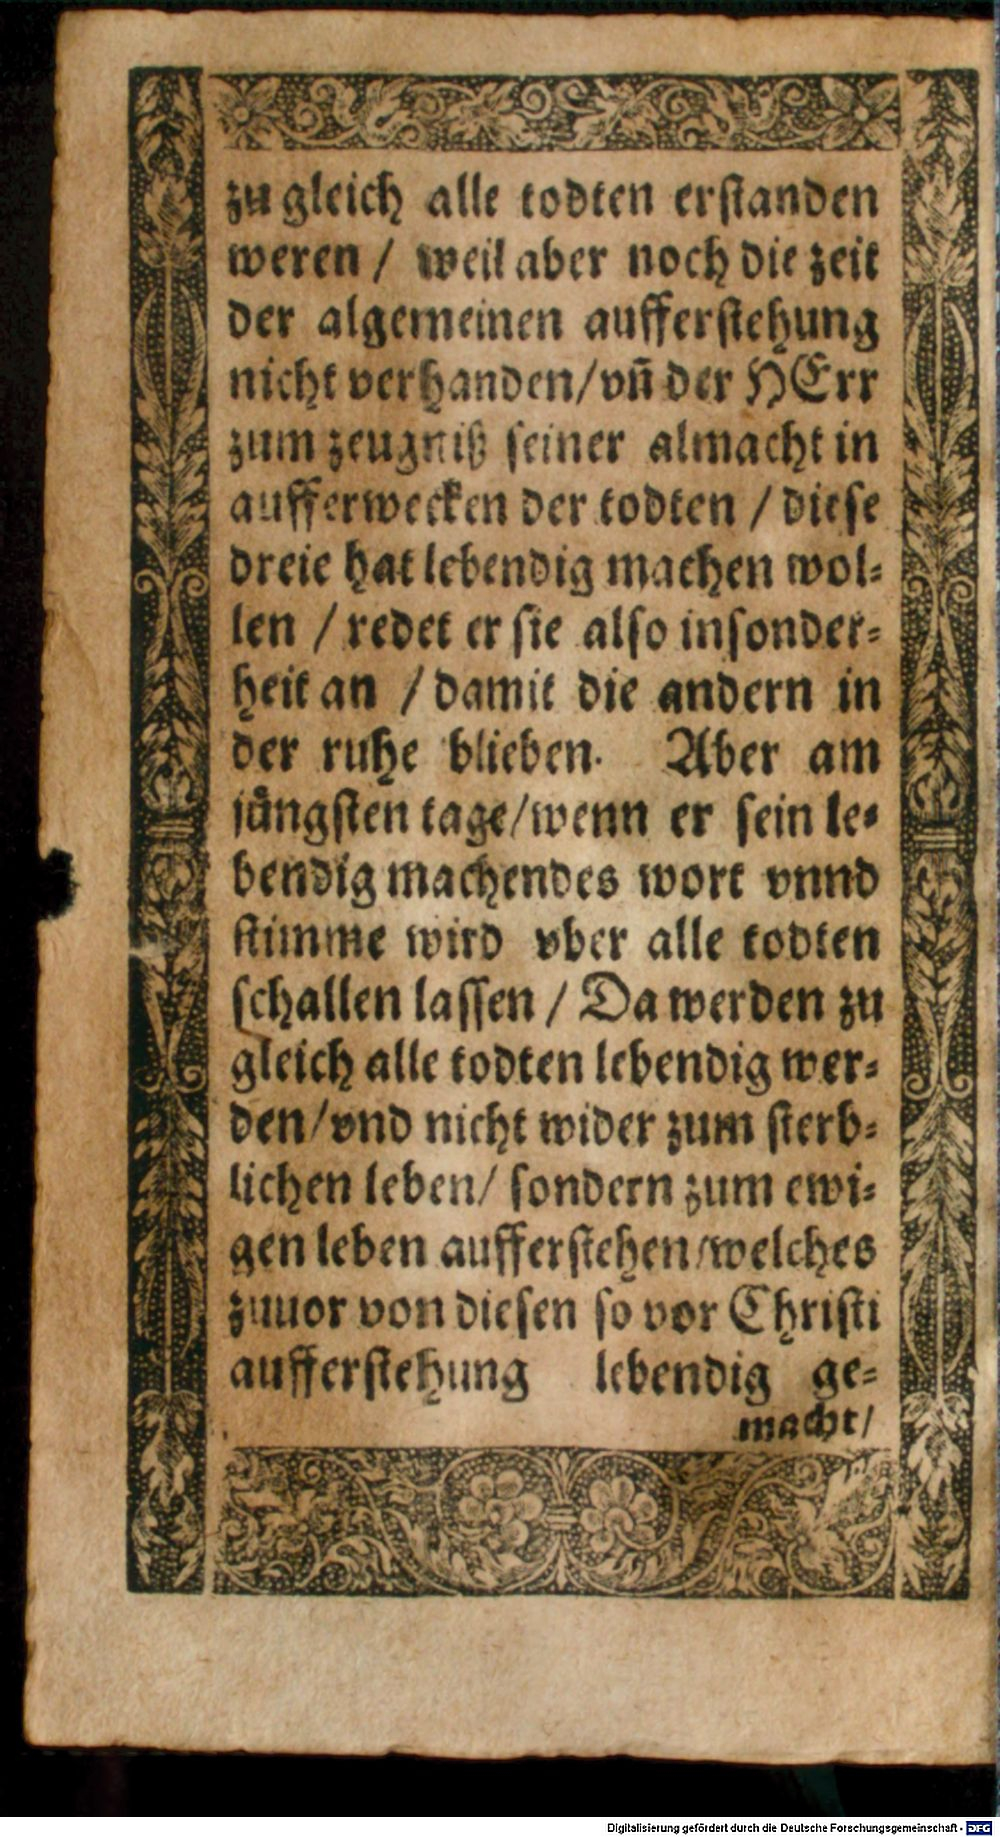 zu gleich alle todten erstanden
weren / weil aber noch die zeit
der algemeinen aufferstehung
nicht verhanden/vñ der HErr
zum zeugniß seiner almacht in
aufferwecken der todten / diese
dreie hat lebendig machen wol-
len / redet er sie also insonder-
heit an / damit die andern in
der ruhe blieben. Aber am
jüngsten tage/wenn er sein le-
bendig machendes wort vnnd
stimme wird vber alle todten
schallen lassen / Da werden zu
gleich alle todten lebendig wer-
den/vnd nicht wider zum sterb-
lichen leben/ sondern zum ewi-
gen leben aufferstehen/welches
zuuor von diesen so vor Christi
aufferstehung lebendig ge-
macht/
Digitalisierung gefördert durch die Deutsche Forschungsgemeinschaft - DFG